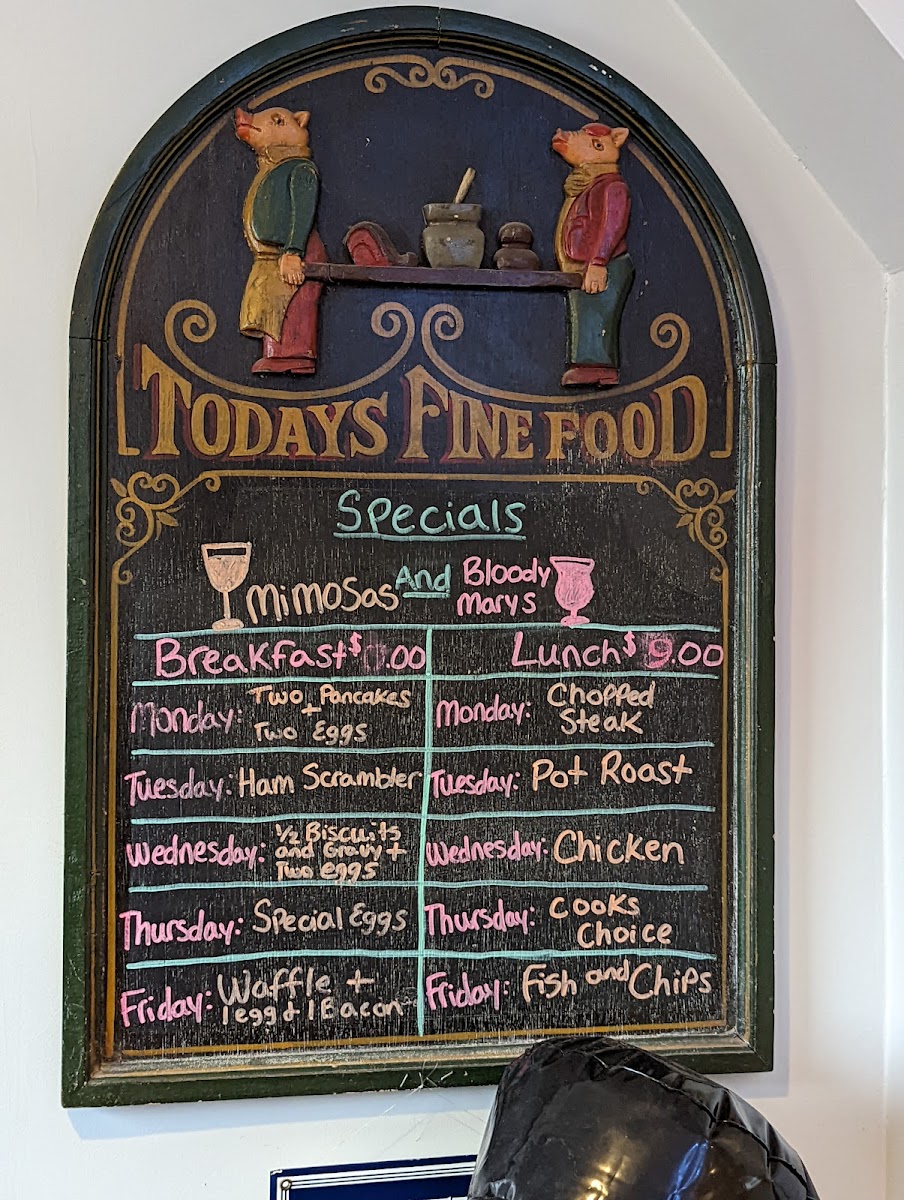 TODAYS FINE FOOD
Specials
Mimosas And Bloody
Marys
Breakfast $ .00
Monday: Two Pancakes
+
Two Eggs
Tuesday: Ham Scrambler
Wednesday: 1/2 Biscuits
and Gravy +
Two eggs
Thursday: Special Eggs
Friday: Waffle +
1 egg + 1 Bacon
Lunch $9.00
Monday: Chopped
Steak
Tuesday: Pot Roast
Wednesday: Chicken
Thursday: Cooks
Choice
Friday: Fish and Chips